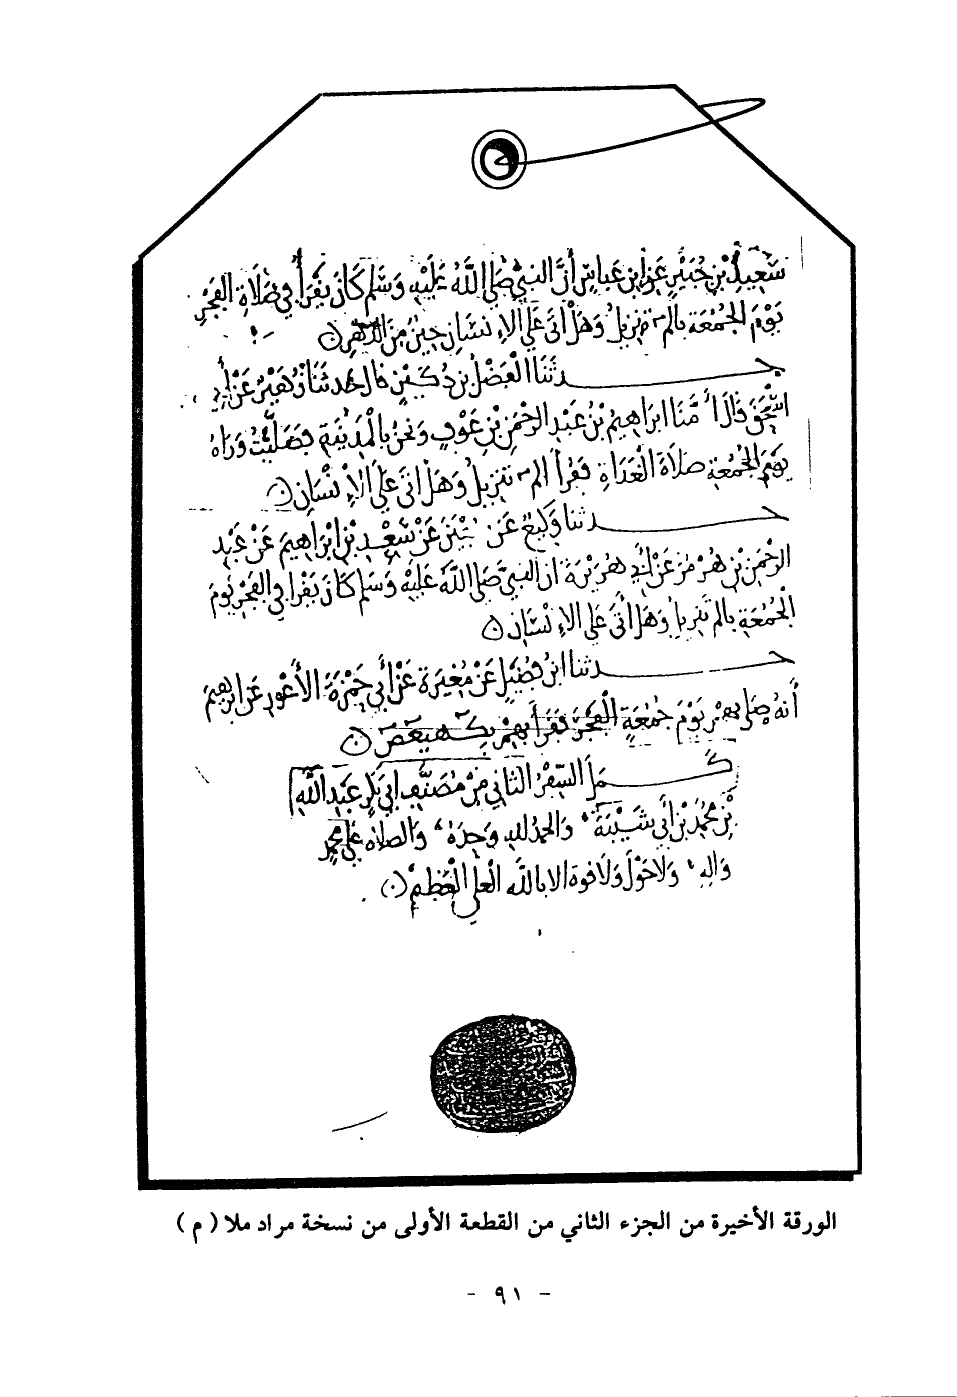 سَعِيدِ بْنِ جُبَيْرٍ عَنِ ابْنِ عَبَّاسٍ أنَّ النبيَّ صَلَّى اللَّهُ عَلَيْهِ وَسَلم كَانَ يَقْرَأُ في صَلَاةِ الفَجْرِ
يَوْمَ الجُمْعَةِ بالم تنزيلُ وَهَلْ اتَى عَلَى الإنسَانِ حِينٌ مِنَ الدَّهْرِ
حـدثَنَا الْفَضْلُ بْنُ دُكَيْنٍ قال حَدثنَا زُهَيْرٌ عَنْ أَبِي
اسْحَقَ قَالَ أمَّنَا ابراهِيمُ بْنُ عَبْدِ الرحْمَنِ بْنِ عَوْفٍ وَنحنُ بالْمَدِينَةِ فصَلَّيْتُ وَرَاهُ
يومَ الجُمُعةِ صلاَةَ الْغَدَاةِ فَقَرأ الم تَنزيلُ وَهَلْ اتَى عَلَى الْإِنْسَانِ
حـدثنا وَكِيعٌ عَنْ سَعْدِ بْنِ ابْرَاهِيمَ عَنْ عَبْدِ
الرحْمَنِ بْنِ هُرْمُزَ عَنْ أَبِي هُرَيْرَةَ ان النبيَّ صَلَى اللَّهُ عَلَيْهِ وَسَلم كَانَ يَقْرا في الفَجْرِ يَومَ
الجُمُعَةِ بالم تَنزيل وَهَل اتَى عَلَى الإِنْسَانِ
حـدثنا ابنُ فُضَيْلٍ عَنْ مُغِيرَةَ عَنْ أَبي حَمْزَةَ الأَعْوَرِ عَنْ ابراهيمَ
أَنهُ صَلى بهمْ يَوْمَ جُمُعَةٍ الْفَجْرَ فَقَرأ بهِمْ بِكهيعص
كَـمَلَ السِّفْرُ الثاني مِنْ مُصَنَّفِ ابي بَكْرٍ عَبْدِ اللَّهِ
بْنِ مُحمَّدِ بْنِ أَبي شَيْبَةَ وَالحمدُ للهِ وَحدَهُ وَالصلاةُ عَلى محمدٍ
وَالِهِ وَلاَحَوْلَ وَلَا قوة الا باللَّه العلي العَظيمْ
الورقة الأخيرة من الجزء الثاني من القطعة الأولى من نسخة مراد ملا ( م )
- ٩١ -